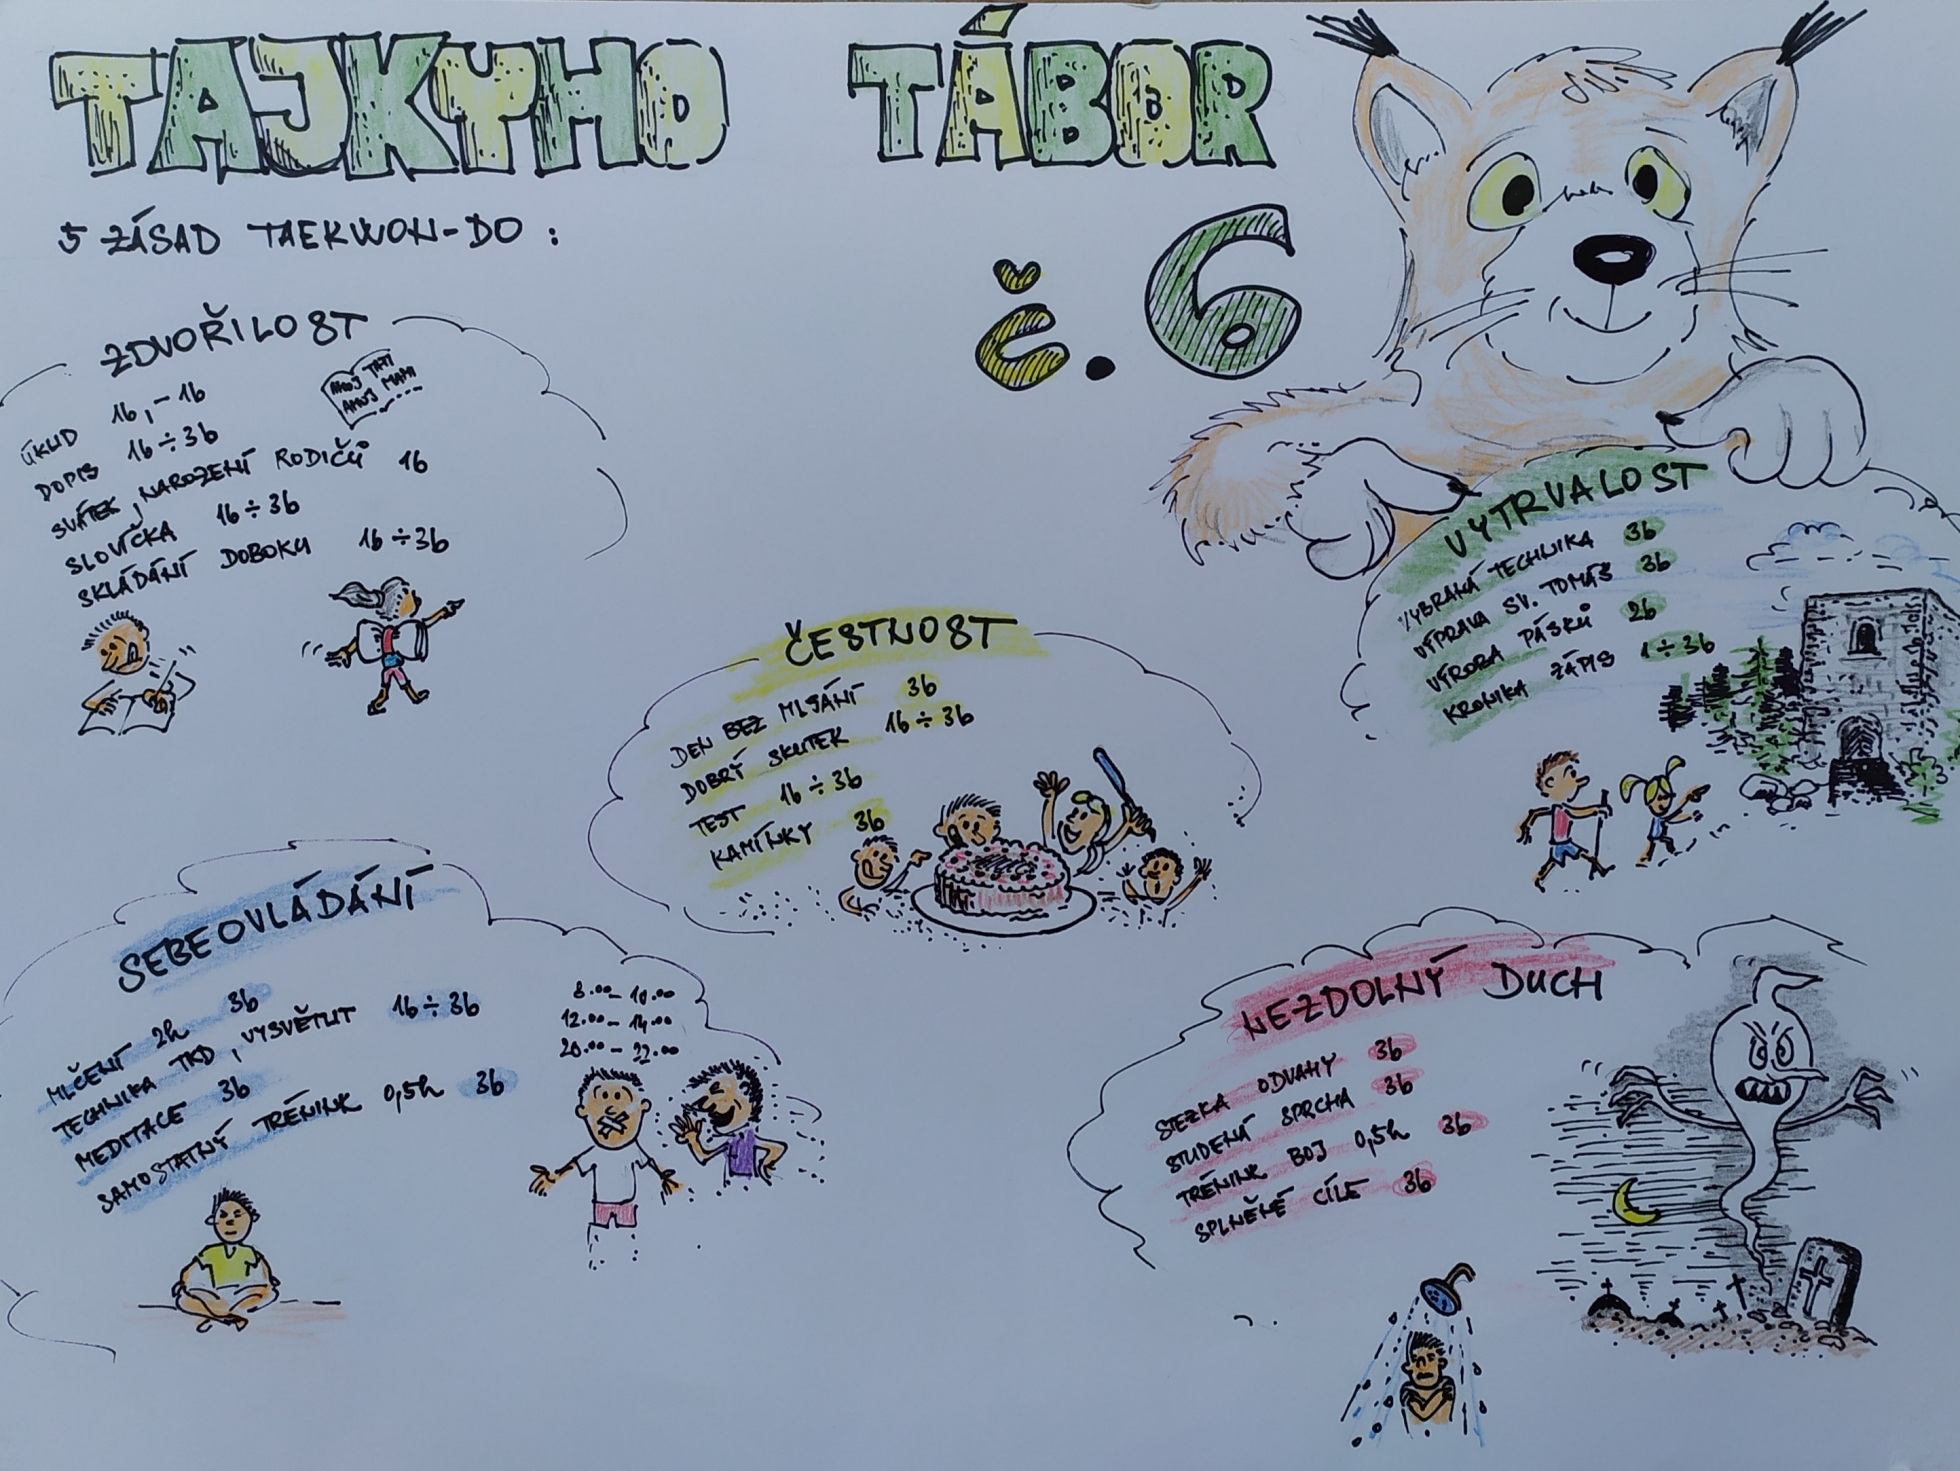 TAJKYHO TÁBOR
č. 6
5 ZÁSAD TAEKWON-DO :
ZDVOŘILOST
ÚKLID 1b, -1b
DOPIS 1b ÷ 3b
SVÁTEK, NAROZENÍ RODIČŮ 1b
SLOVÍČKA 1b ÷ 3b
SKLÁDÁNÍ DOBOKU 1b ÷ 3b
AHOJ TATI
AHOJ MAMI
VYTRVALOST
VYBRANÁ TECHNIKA 3b
VÝPRAVA SV. TOMÁŠ 3b
VÝROBA PÁSKŮ 2b
KRONIKA ZÁPIS 1 ÷ 3b
ČESTNOST
DEN BEZ MLJÁNÍ 3b
DOBRÝ SKUTEK 1b ÷ 3b
TEST 1b ÷ 3b
KAMÍNKY 3b
SEBEOVLÁDÁNÍ
MLČENÍ 2h 3b
TECHNIKA TKD, VYSVĚTLIT 1b ÷ 3b
MEDITACE 3b
SAMOSTATNÝ TRÉNINK 0,5h 3b
8.00 - 10.00
12.00 - 14.00
20.00 - 22.00
NEZDOLNÝ DUCH
STEZKA ODVAHY 3b
STUDENÁ SPRCHA 3b
TRÉNINK BOJ 0,5h 3b
SPLNĚNÉ CÍLE 3b